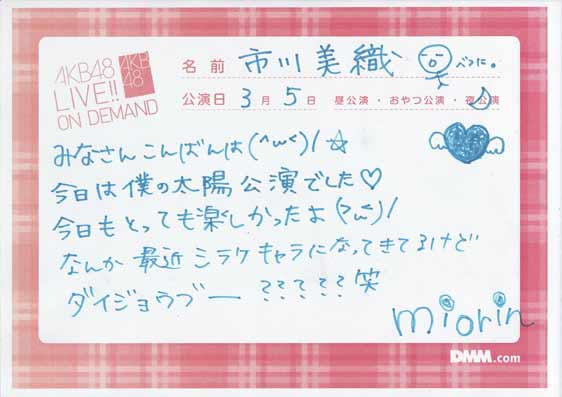 AKB48
LIVE!!
ON DEMAND
AKB
48
名前 市川美織
べつに。
公演日 3月5日 昼公演・おやつ公演・夜公演
みなさんこんばんは(^ω<)/☆
今日は僕の太陽公演でした♡
今日もとっても楽しかったよ(>ω<)/
なんか最近シラケキャラになってきてるけど
ダイジョウブー ?????笑
miorin
DMM.com